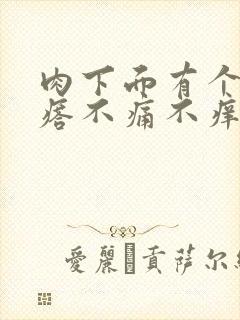 肉下面有个
疙不痛不痒
愛麗貢萨尔